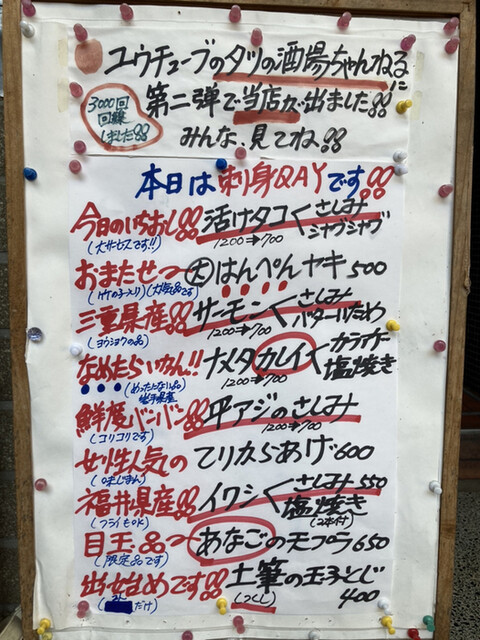 ユウチューブのタツの酒場ちゃんねるに
3000回
回線
しました!!
第二弾で当店が出ました!!
みんな、見てね!!
本日は刺身DAYです!!
今日のいちおし!! 活けタコ さしみ シャブシャブ
(大サービスです!!) 1200→700
おまたせ〜 大はんぺんヤキ 500
(竹の子入り)(大好品です)
三重県産!! サーモン さしみ バターソテー
(ヨウショクの品) 1200→700
なめたらいかん!! ナメタカレイ カラアゲ 塩焼き
(めったにない品) 岩手県産 1200→700
鮮度バンバン!! 平アジのさしみ
(コリコリです) 1200→700
女性人気の てりからあげ 600
(味じまん)
福井県産!! イワシ さしみ 550 塩焼き
(フライもOK) (2本付)
目玉品〜 あなごの天プラ 650
(限定品です)
出始めです!! 土筆の玉子とじ
(だけ) (つくし) 400